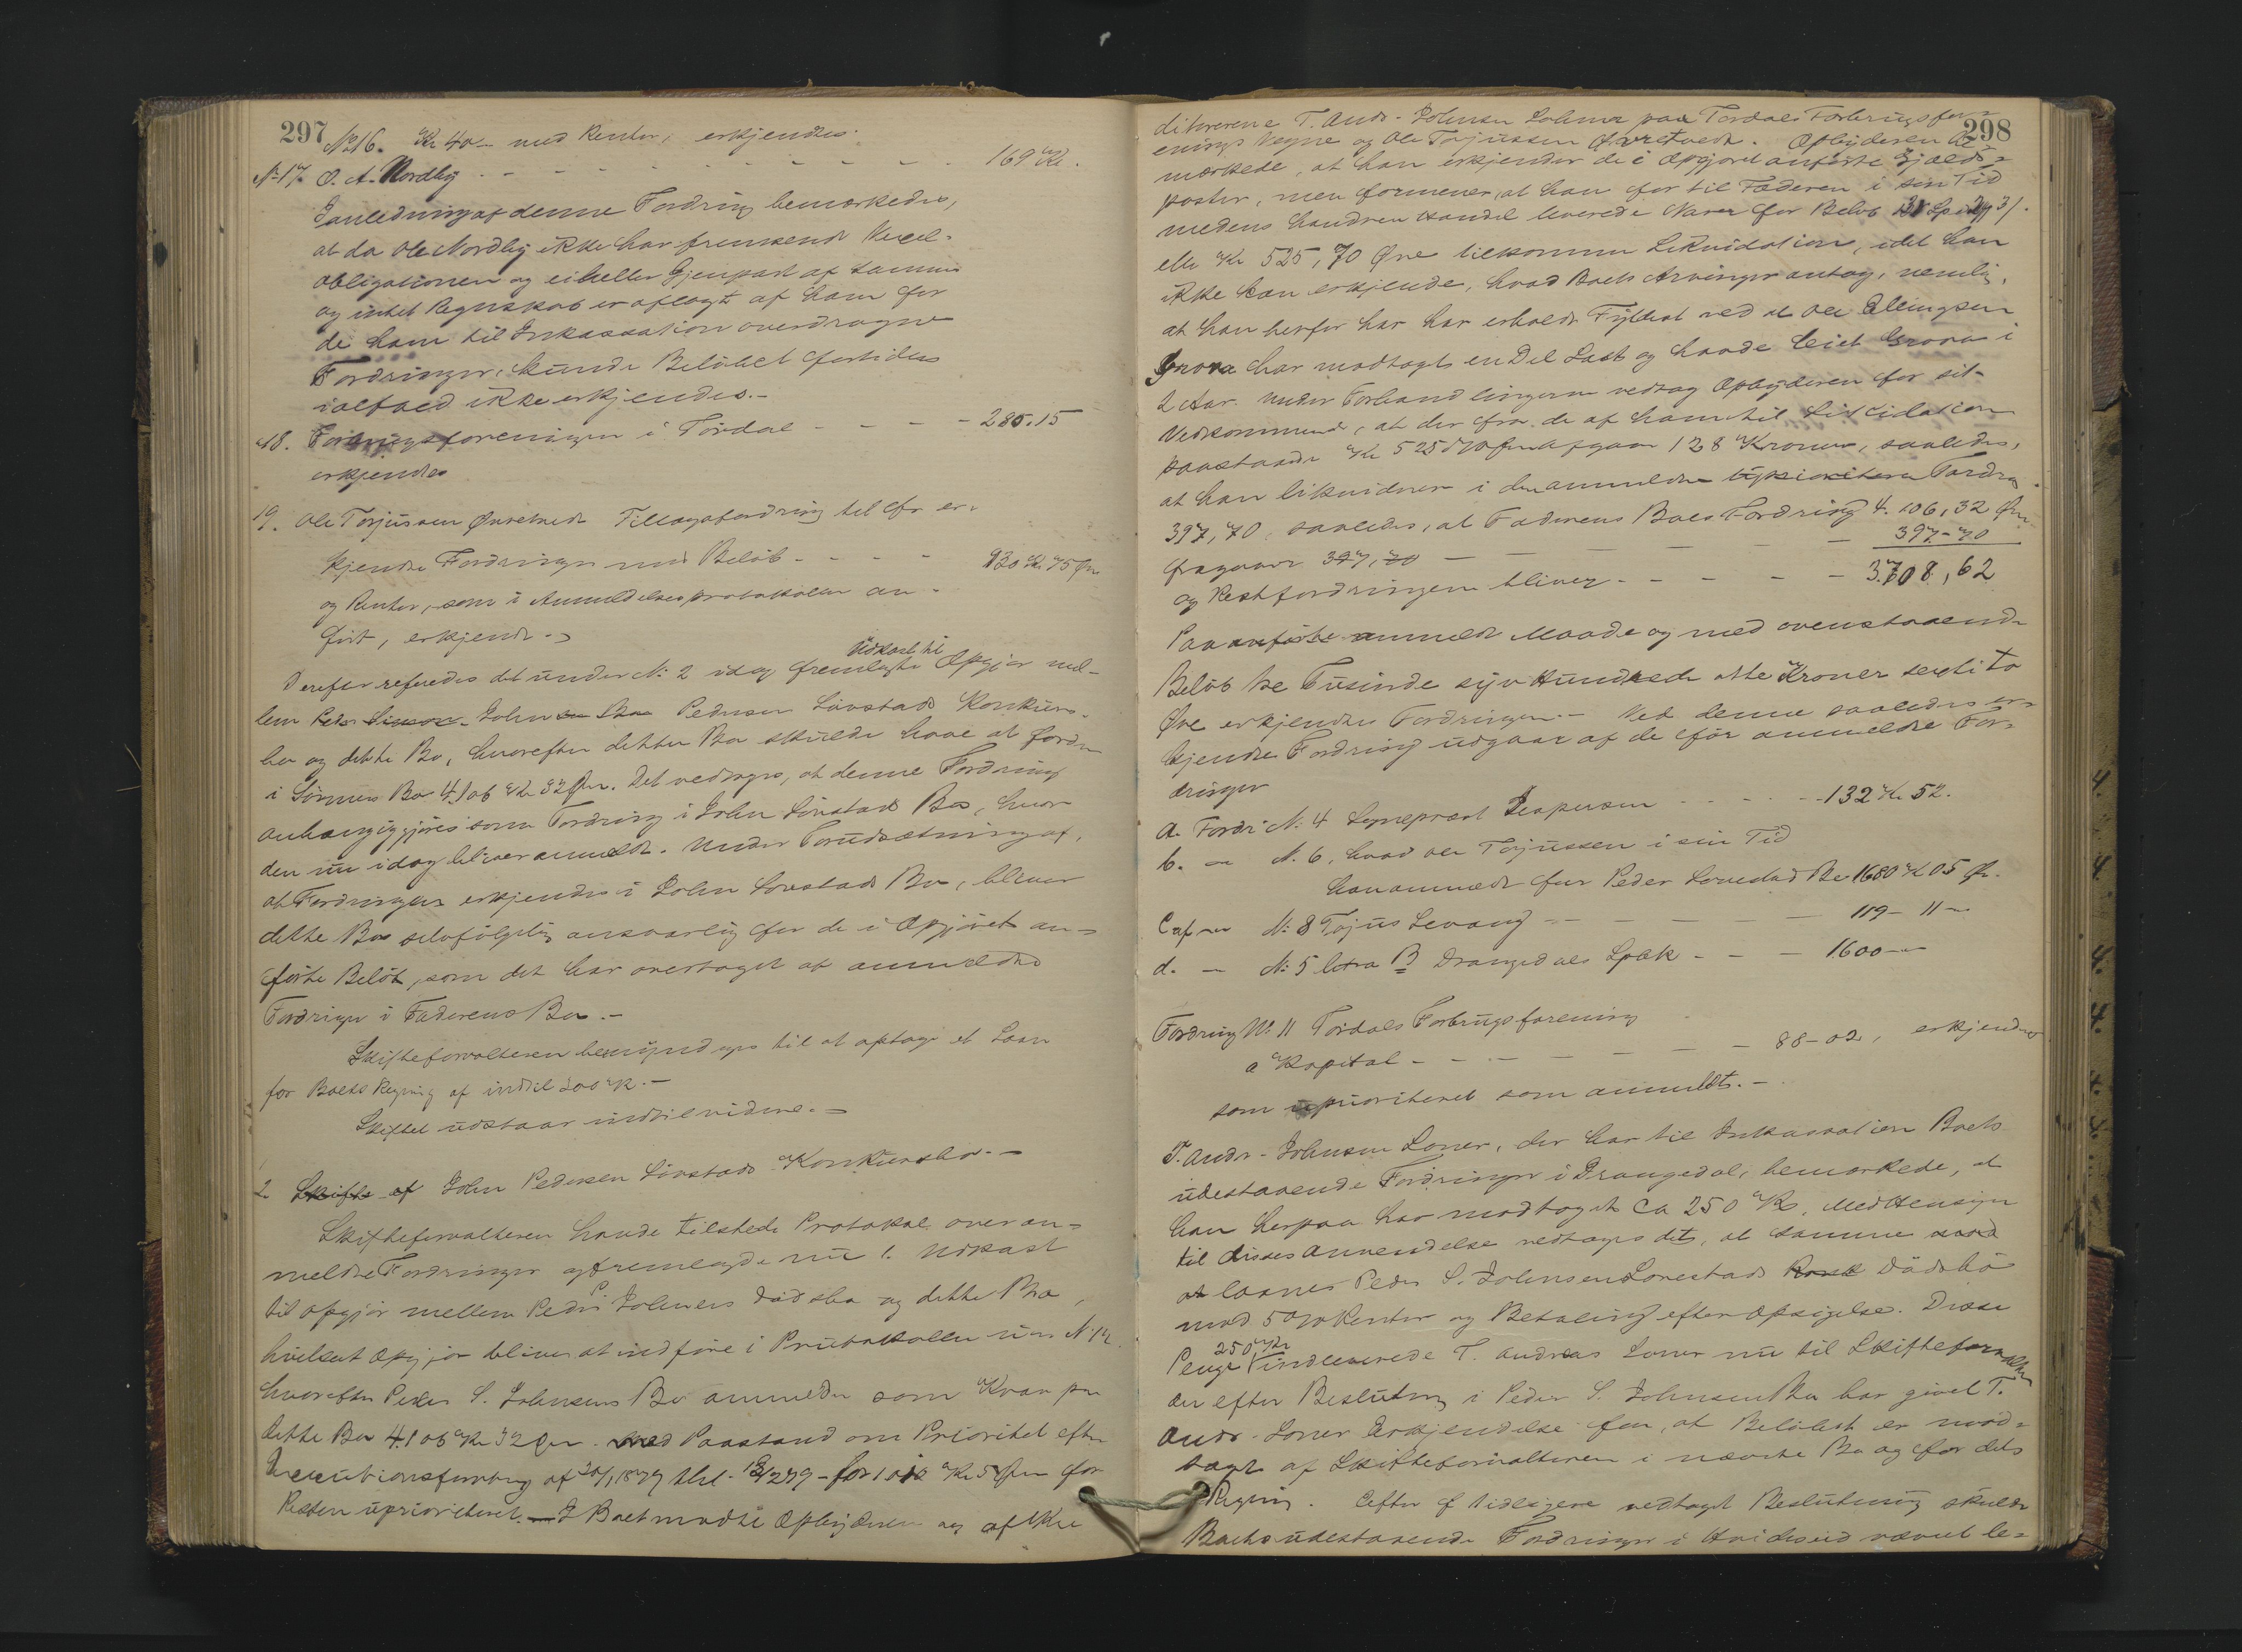 297
No 16. Kr 40 - med Renter, erkjendtes.
No 17. O. A. Nordby - - - - - - - - - 169 Kr.
I anledning af denne Fordring bemærkedes,
at da Ole Nordby ikke har fremsendt Vexel-
obligationen og ei heller Gjenpart af samme
og intet Regnskab er aflagt af ham for
de ham til Inkassation overdragne
Fordringer, kunde Beløbet fortiden
ialfald ikke erkjendes. -
18. Forbrugsforeningen i Tørdal - - - - 285.15
erkjendtes
19. Ole Torjussen Tillægsfordring til før er-
kjendte Fordringer med Beløb - - - - 930 Kr 75 Øre
og Renter, som i Anmeldelsesprotokollen an-
ført, erkjendt. -
Derefter refereredes det under No 2 idag fremlagte Udkast til Opgjør mel-
lem Peder John Pedersen Løvstads Konkurs-
bo og dette Bo, hvorefter dette Bo skulde have at fordre
i Sønnens Bo 4.106 Kr 32 Øre. Det vedtoges, at denne Fordring
anhængiggjøres som Fordring i John Løvstads Bo, hvor
den nu idag bliver anmeldt. Under Forudsætning af,
at Fordringen erkjendes i John Lovstads Bo, bliver
dette Bo selvfølgelig ansvarlig for de i Opgjøret an-
førte Beløb, som det har overtaget at anmeldte
Fordringer i Faderens Bo. -
Skifteforvalteren bemyndiges til at optage et Laan
for Boets Regning af indtil 200 Kr. -
Skiftet udstaar indtil videre. -
2 Skifte af John Pedersen Lövstads Konkursbo. -
Skifteforvalteren havde tilstede Protokol over an-
meldte Fordringer og fremlagde nu 1. Udkast
til Opgjør mellem Peder Johnsens Dødsbo og dette Bo,
hvilket Opgjør bliver at indføre i Protokollen No 12
hvorefter Peder S. Johnsens Bo anmelder som Krav paa
dette Bo 4.106 Kr 32 Øre. Med Paastand om Prioritet efter
Executionsforretning af 20/1 1879 for Kr 5 Øre for
Resten uprioriteret. - I Boet mødte Opbyderen og af Kre
298
ditorerne T. Andr. Johnsen Loner paa Tørdals Forbrugsfor-
enings Vegne og Ole Torjussen. Opbyderen be-
mærkede, at han erkjender de i Opgjøret anførte Gjælds-
poster, men formener, at han for til Faderen i sin Tid
medens han drev Handel leverede Varer for Beløb
eller Kr 525,70 Øre tilkommer Likvidation, idet han
ikke kan erkjende, hvad Boets Arvinger antog, nemlig,
at han herfor har har erholdt Fyldest ved at Ole Ellingsen
Grova har modtaget en Del Last og havde leiet Grova i
2 Aar. Under Forhandlingerne vedtog Opbyderen for sit
Vedkommende, at der fra de af ham til Likvidation
paastaaede Kr 525,70 Øre afgaar 128 Kroner, saaledes,
at han likviderer i den anmeldte uprioriterte Fordring
397,70, saaledes, at Faderens Boes Fordring 4.106,32 Øre
fragaaer 397,70 - - - - - 397-70
og Restfordringen bliver - - - - - 3.708,62
Paa anførte anmeldt Maade og med ovenstaaende
Beløb tre Tusinde syv Hundrede otte Kroner sexti to
Øre erkjendtes Fordringen. - Ved denne saaledes er-
kjendte Fordring udgaar af de før anmeldte For-
dringer
a. Fordr. No. 4 Sogneprest Jespersen - - - - 132 Kr 52.
b. - No. 6, hvad Ole Torjussen i sin Tid
har anmeldt for Peder Lovestad Bo 1680 Kr 05 Ør.
C af - No. 8 Tojus Levang - - - - - 119 - 11 -
d. - No 5 litra B Drangedals Spbk - - - 1.600 -
Fordring No. 11 Tørdals Forbrugsforening
a Kapital - - - - - - - 88-02, erkjendtes
som uprioriteret som anmeldt. -
T. Andr. Johnsen Loner, der har til Inkassation Boets
udestaaende Fordringer i Drangedal, bemærkede, at
han herpaa har modtaget Ca 250 Kr. Med Hensyn
til disses Anvendelse vedtoges det, at samme
at laanes Peder S. Johnsen Lovestads Dødsbo
mod 5 % Renter og Betaling efter Opsigelse. Disse
Penge 250 Kr indleverede T. Andreas Loner nu til Skifteforvalteren
der efter Beslutning i Peder S. Johnsens Bo har givet T.
Andr. Loner Erkjendelse for, at Beløbet er mod-
taget af Skifteforvalteren i nævnte Bo og for dets
Regning. Efter tidligere vedtaget Beslutning skulde
Boets udestaaende Fordringer i Hvideseid været le-